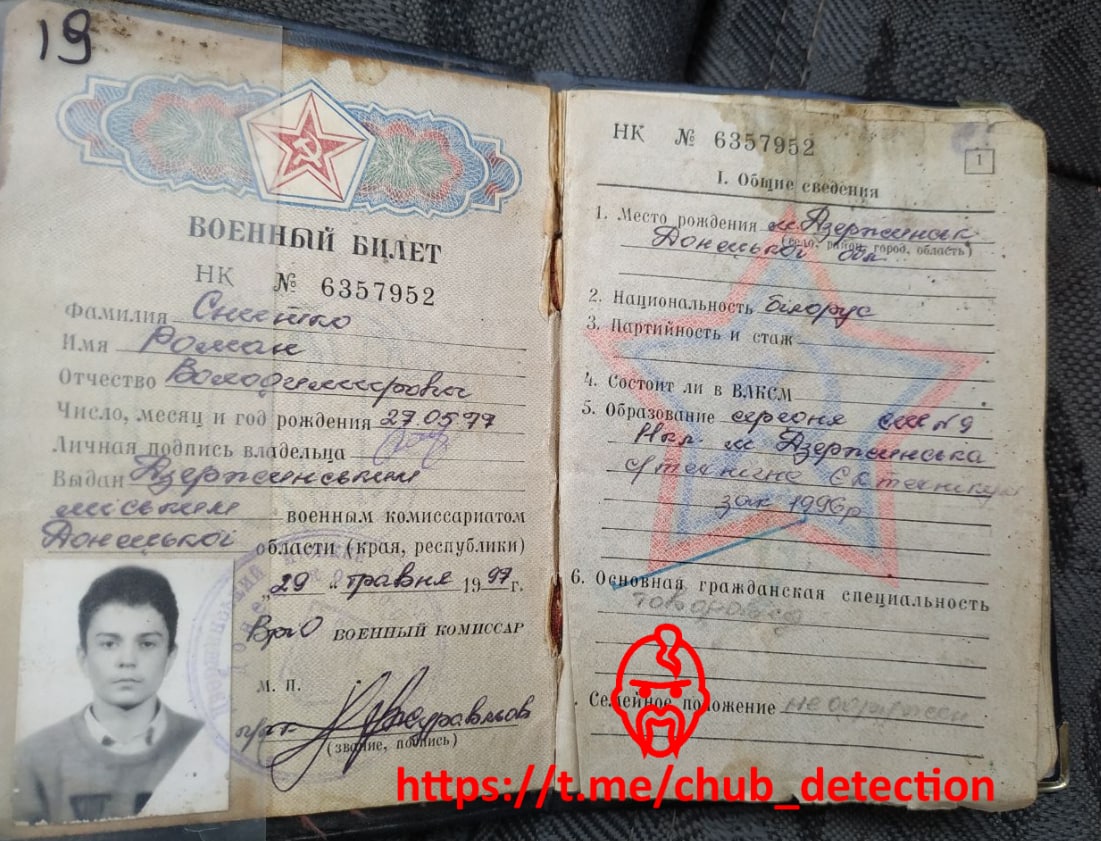 19
ВОЕННЫЙ БИЛЕТ
НК № 6357952
Фамилия
Имя Роман
Отчество Володимирович
Число, месяц и год рождения 27.05.77
Личная подпись владельца
Выдан Дзержинським
міським военным комиссариатом
Донецької области (края, республики)
„29 " травня 1997 г.
ВріО ВОЕННЫЙ КОМИССАР
М. П.
Журавльов
(звание, подпись)
НК № 6357952
1
I. Общие сведения
1. Место рождения м. Дзержинськ
(село, район, город, область)
Донецької обл
2. Национальность білорус
3. Партийность и стаж
4. Состоит ли в ВЛКСМ
5. Образование середня СШ №9
м Дзержинська
зак 1996р
6. Основная гражданская специальность
товаровед
Семейное положение
https://t.me/chub_detection